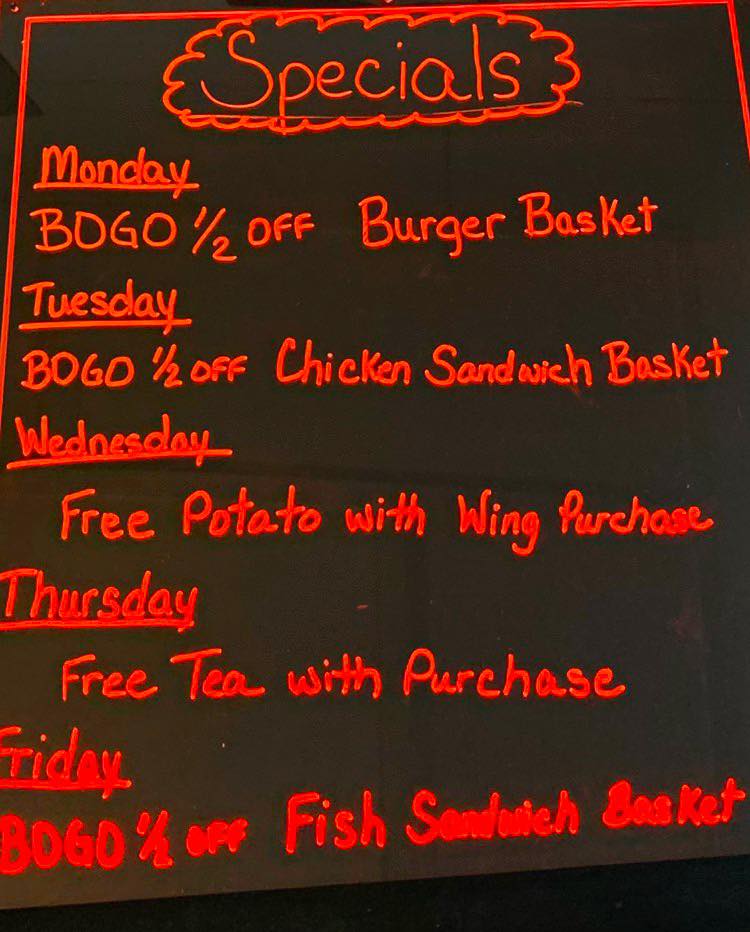 Specials
Monday
BOGO 1/2 OFF Burger Basket
Tuesday
BOGO 1/2 OFF Chicken Sandwich Basket
Wednesday
Free Potato with Wing Purchase
Thursday
Free Tea with Purchase
Friday
BOGO 1/2 OFF Fish Sandwich Basket